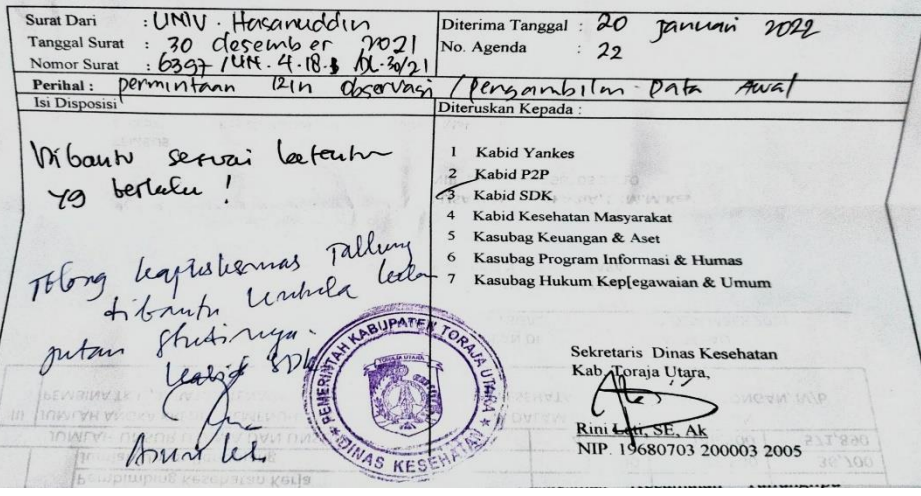 Surat Dari : UNIV. Hasanuddin
Tanggal Surat : 30 desember 2021
Nomor Surat : 6397/UN.4.18.
Diterima Tanggal : 20 Januari 2022
No. Agenda : 22
Perihal : permintaan izin observasi / pengambilan Data Awal
Isi Disposisi
Dibantu sesuai ketentuan
yg berlaku !
Tolong kapuskesmas Tallung
dibantu
studinya.
Kabid SDK
Diteruskan Kepada :
1 Kabid Yankes
2 Kabid P2P
3 Kabid SDK
4 Kabid Kesehatan Masyarakat
5 Kasubag Keuangan & Aset
6 Kasubag Program Informasi & Humas
7 Kasubag Hukum Kep[egawaian & Umum
PEMERINTAH KABUPATEN TORAJA UTARA
TORAJA UTARA
DINAS KESEHATAN
Sekretaris Dinas Kesehatan
Kab. Toraja Utara,
Rini Lati, SE, Ak
NIP. 19680703 200003 2005